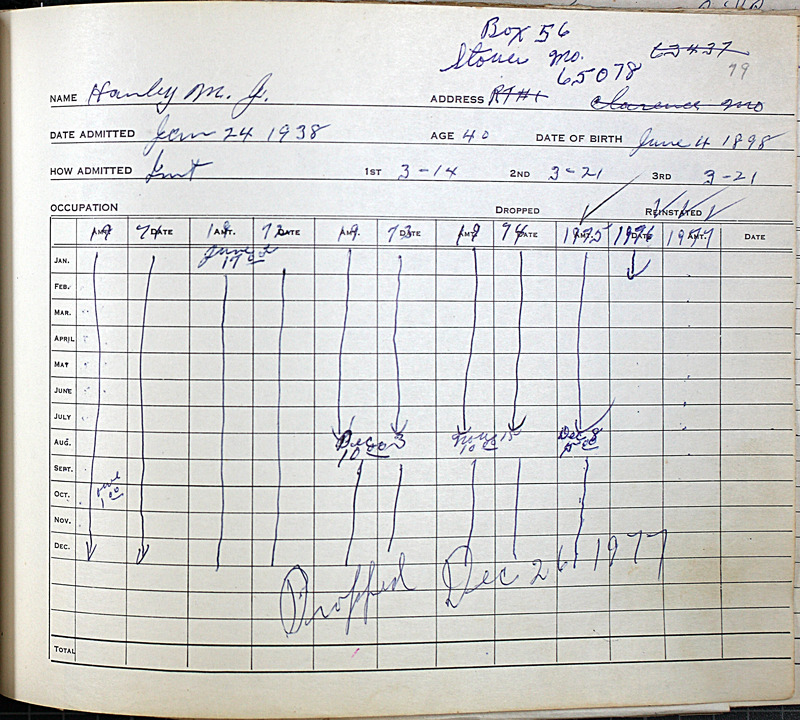 Box 56
Stover Mo. 63437
65078 79
NAME Hanley M. J. ADDRESS Rt #1 Clarence Mo
DATE ADMITTED Jan 24 1938 AGE 40 DATE OF BIRTH June 4 1898
HOW ADMITTED 1ST 3-14 2ND 3-21 3RD 3-21
OCCUPATION DROPPED REINSTATED
AMT. 7 DATE 19 AMT. 72 DATE 19 AMT. 73 DATE 19 AMT. 74 DATE 1975 AMT. 1976 DATE 1977 AMT. DATE
JAN. June 2
17 00
FEB.
MAR.
APRIL
MAY
JUNE
JULY
AUG. Dec 3 15 Dec 8
10 00 10 00 5 00
SEPT.
OCT. 1 00
NOV.
DEC.
Dropped Dec 26 1977
TOTAL